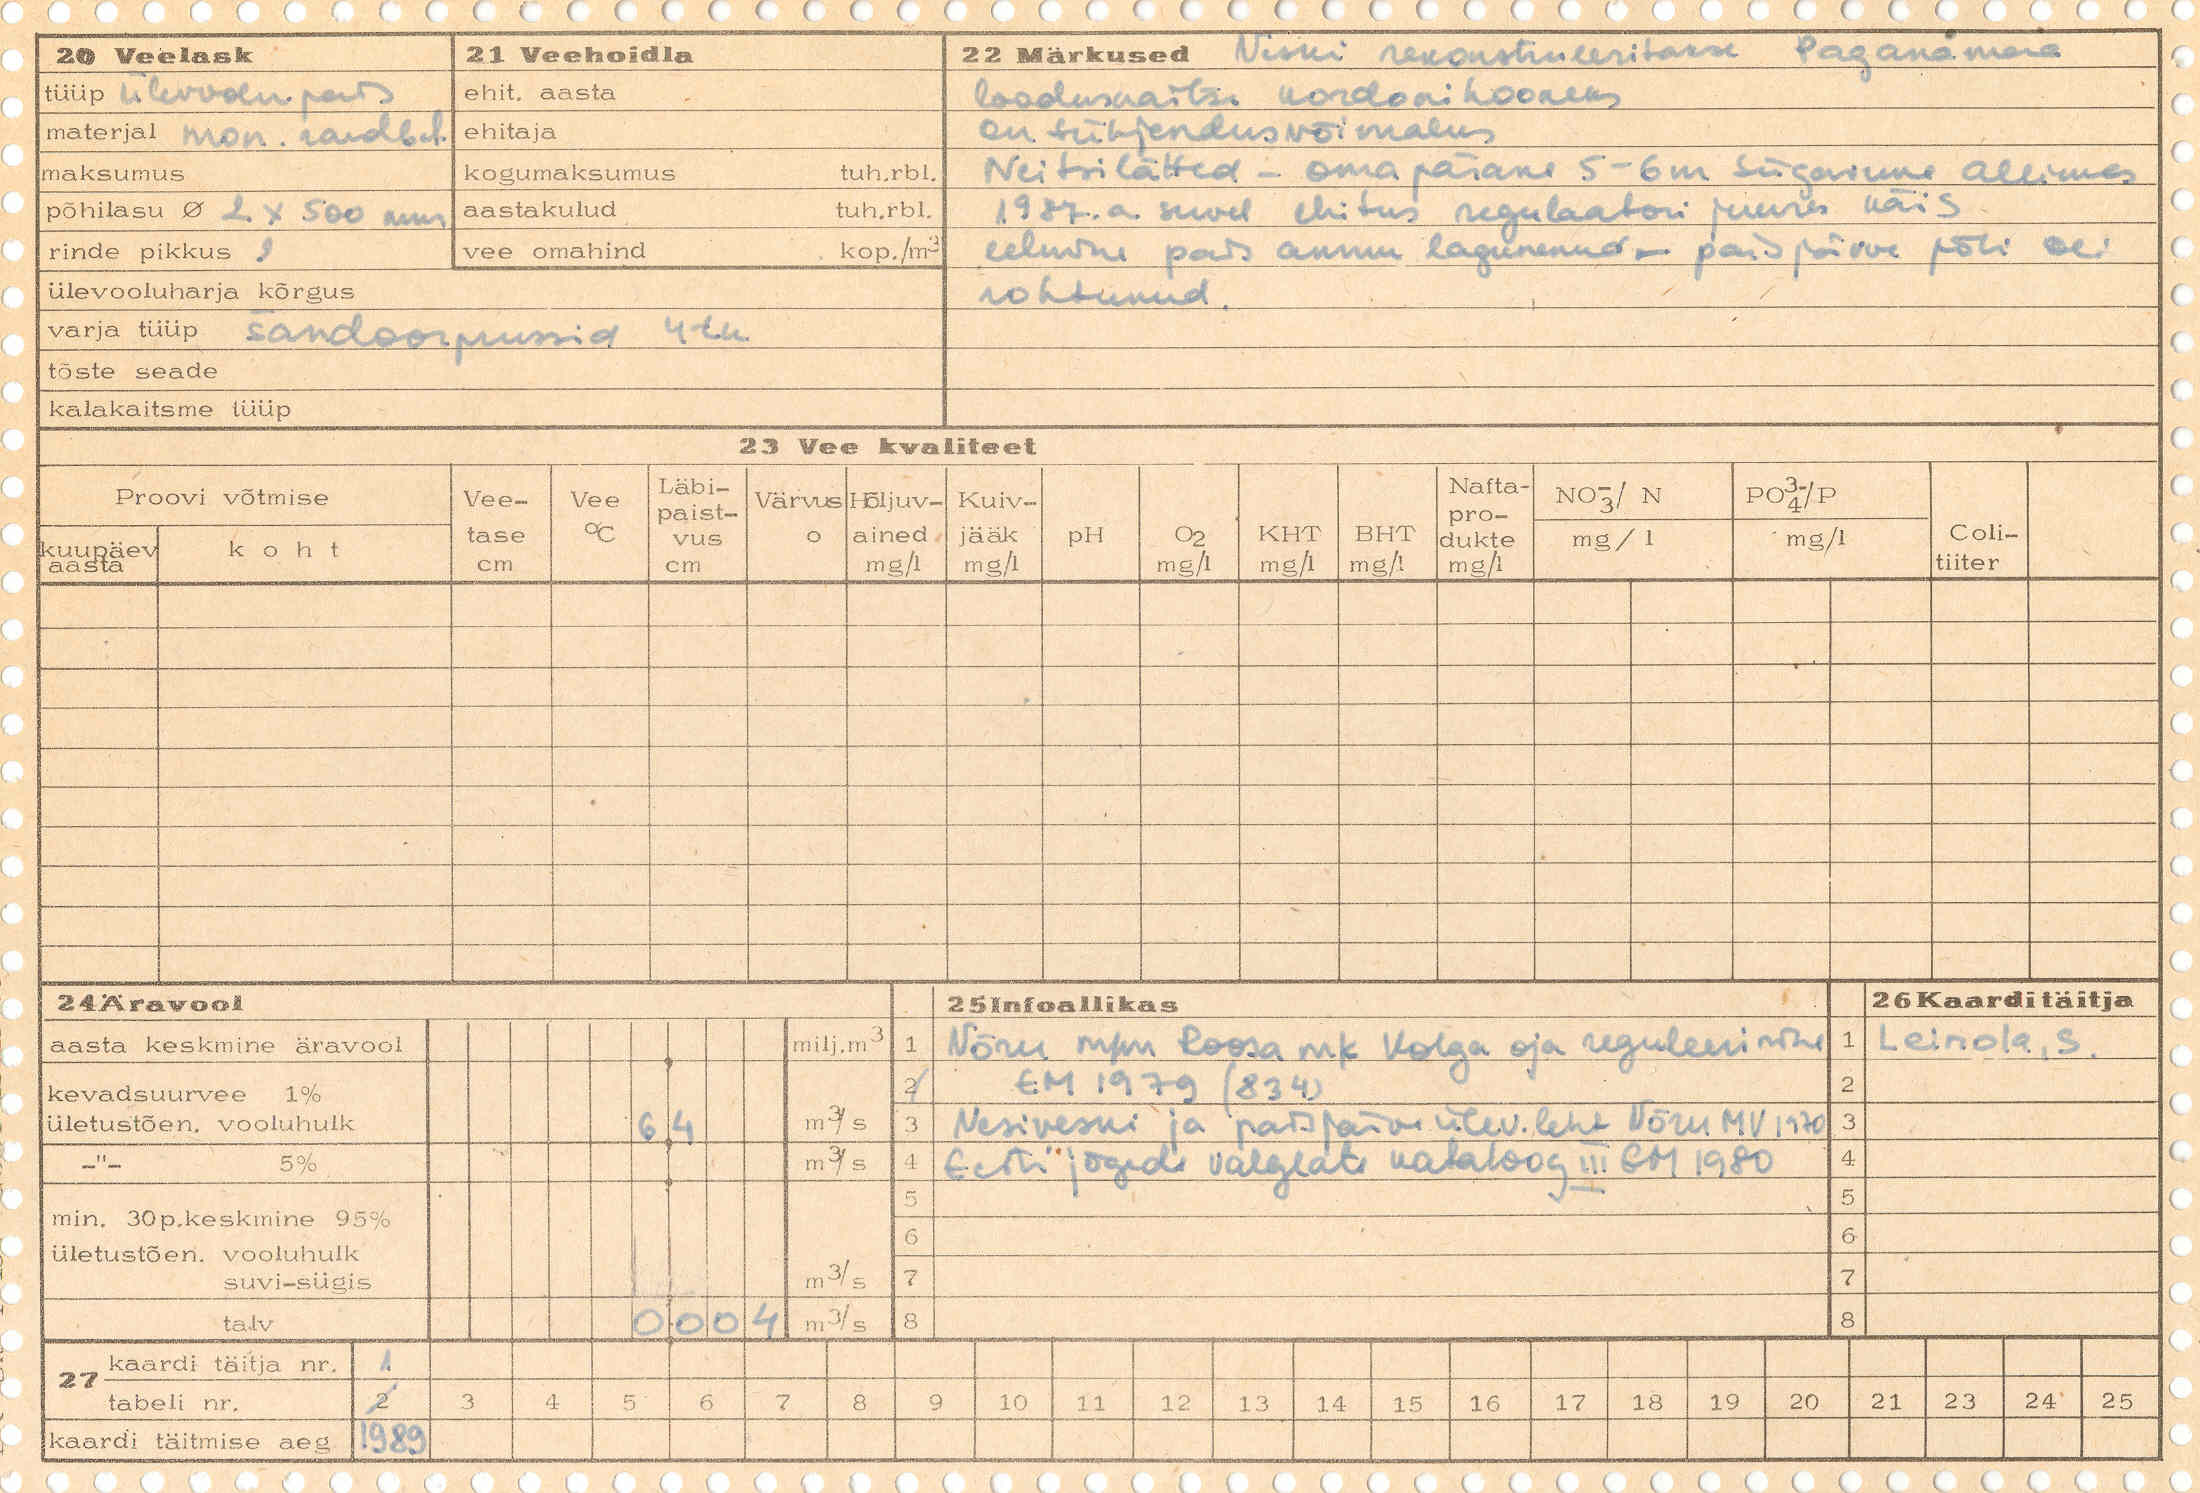 20 Veelask
tüüp ülevoolu pais
materjal mon. raudbet.
maksumus
põhilasu Ø 2 x 500 mm
rinde pikkus
ülevooluharja kõrgus
varja tüüp šandoorprussid 4 tk
tõste seade
kalakaitsme tüüp
21 Veehoidla
ehit. aasta
ehitaja
kogumaksumus tuh.rbl.
aastakulud tuh.rbl.
vee omahind kop./m3
22 Märkused Veski rekonstrueeritakse Paganamaa
looduskaitse kordonihooneks
on tühjendusvõimalus
Neitsilätted – omapärane 5-6m sügavune allikas
1987. a. suvel ehitus regulaatori juures käis
eelmine pais ammu lagunenud – paisjärve põhi oli
rohtunud.
23 Vee kvaliteet
Proovi võtmise
kuupäev aasta
koht
Vee-tase cm
Vee °C
Läbi-paist-vus cm
Värvus o
Hõljuv-ained mg/l
Kuiv-jääk mg/l
pH
O2 mg/l
KHT mg/l
BHT mg/l
Nafta-pro-dukte mg/l
NO3-/ N mg/l
PO4 3-/P mg/l
Coli-tiiter
24 Äravool
aasta keskmine äravool milj.m3
kevadsuurvee 1%
ületustõen. vooluhulk 6 4 m3/s
-"- 5% m3/s
min. 30p.keskmine 95%
ületustõen. vooluhulk
suvi-sügis m3/s
talv 0 0 0 4 m3/s
25 Infoallikas
1 Võru raj. Roosa mk Kolga oja reguleerimine
2 EM 1979 (834)
3 Vesiveski ja paisjärve ülev. leht Võru MV 1970
4 Eesti jõgede valglate kataloog III EM 1980
5
6
7
8
26 Kaarditäitja
1 Leinola, S.
2
3
4
5
6
7
8
27 kaardi täitja nr. 1
tabeli nr. 2 3 4 5 6 7 8 9 10 11 12 13 14 15 16 17 18 19 20 21 23 24 25
kaardi täitmise aeg 1989